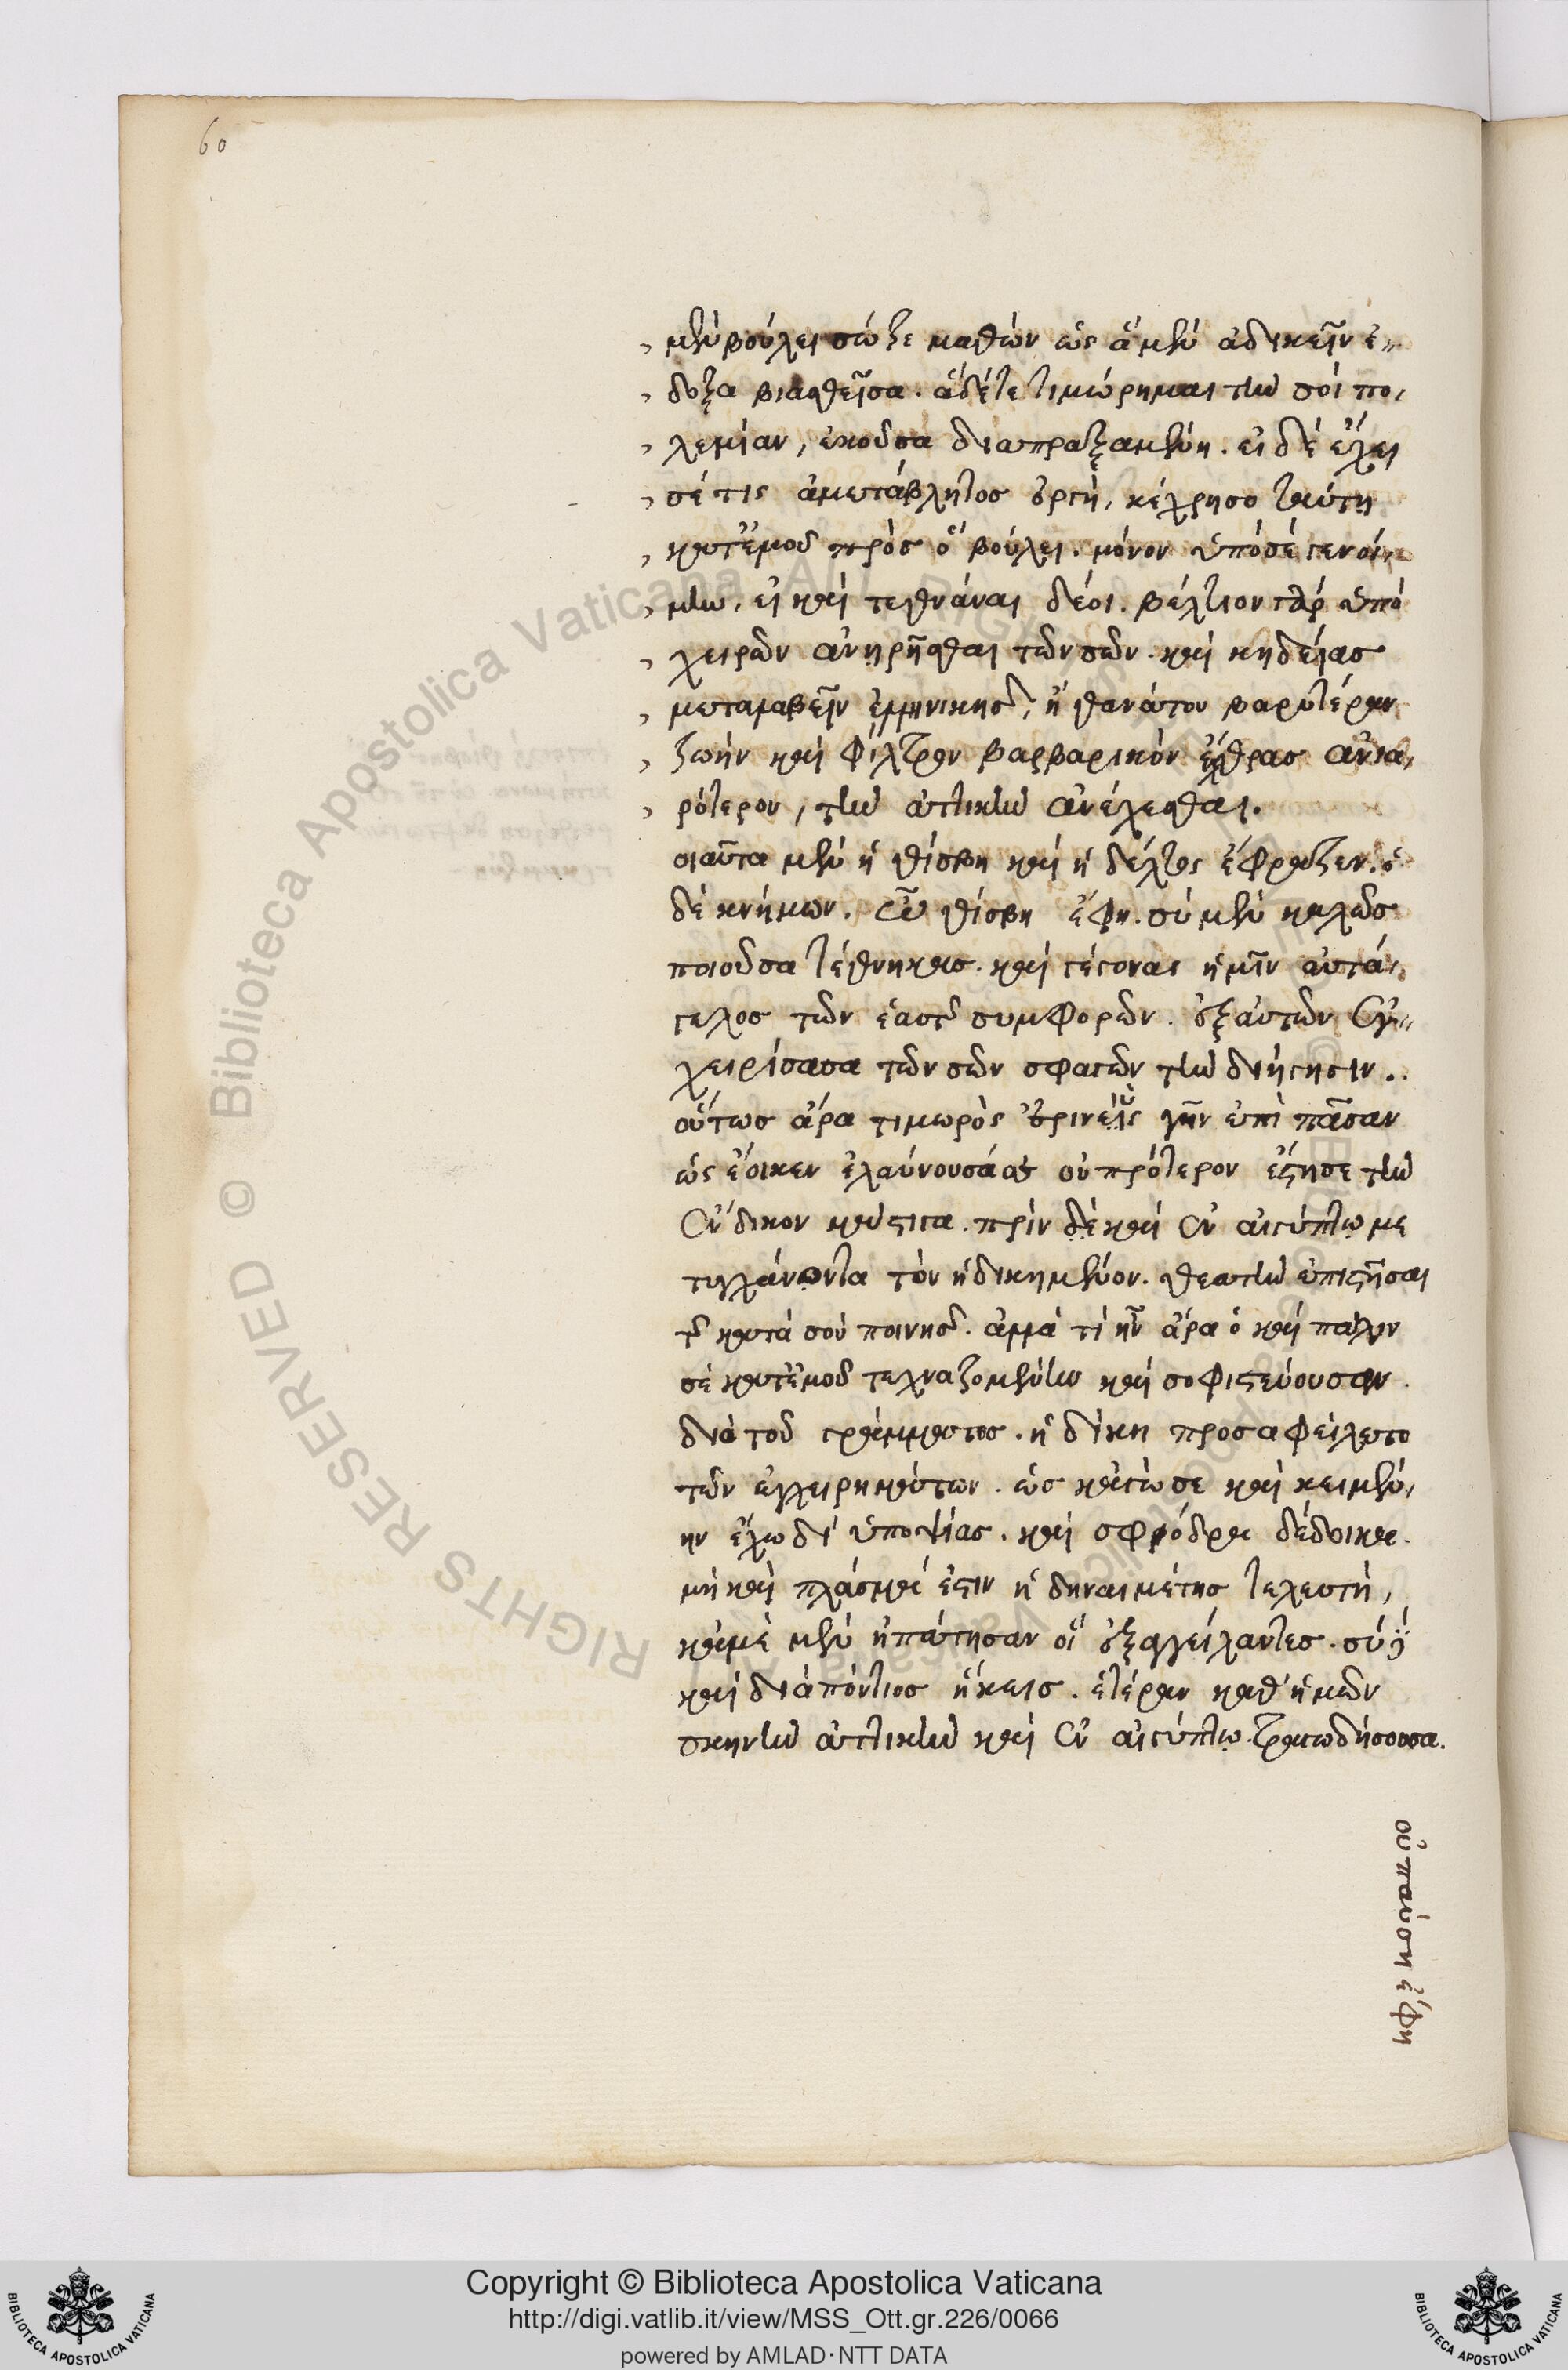 60
μὲν βούλει σῶζε μαθὼν ὡς ἃ μὲν ἀδικεῖν ἔ-
δοξα βιασθεῖσα. ἃ δέ γε τιμώρημαι τὴν σοὶ πο-
λεμίαν, ἑκοῦσα διαπραξαμένη. εἰ δὲ ἔχει
σέ τις ἀμετάβλητος ὀργὴ, κέχρησο ταύτη
κατ' ἐμοῦ πρὸς ὃ βούλει. μόνον ὑπὸ σὲ γενοί-
μην, εἰ καὶ τεθνάναι δέοι. βέλτιον γὰρ ὑπὸ
χειρῶν ἀνηρῆσθαι τῶν σῶν. καὶ κηδείας
μεταλαβεῖν ἑλληνικῆς, ἢ θανάτου βαρυτέραν
ζωὴν καὶ φίλτρον βαρβαρικὸν ἔχθρας ἀνια-
ρότερον, τὴν ἀττικὴν ἀνέχεσθαι.
οιαῦτα μὲν ἡ θίσβη καὶ ἡ δέλτος ἔφραζεν. ὁ
δὲ κνήμων. ὦ θίσβη ἔφη. σὺ μὲν καλῶς
ποιοῦσα τέθνηκας. καὶ γέγονας ἡμῖν αὐτά-
γελος τῶν ἑαυτῆς συμφορῶν. ἐξ αὐτῶν ἐγ-
χειρίσασα τῶν σῶν σφαγῶν τὴν διήγησιν.
οὕτως ἄρα τιμωρὸς ἐρινεὺς γῆν ἐπὶ πᾶσαν
ὡς ἔοικεν ἐλαύνουσά σε οὐ πρότερον ἔστησε τὴν
ἔνδικον μάστιγα. πρὶν δὲ καὶ ἐν αἰγύπτω με
τυγχάνοντα τὸν ἠδικημένον. θεατὴν ἐπιστῆσαι
τῆς κατὰ σοῦ ποινῆς. ἀλλὰ τί ἦν ἄρα ὃ καὶ πάλιν
σὲ κατ' ἐμοῦ τεχναζομένην καὶ σοφιστεύουσαν.
διὰ τοῦ γράμματος. ἡ δίκη προσαφείλετο
τῶν ἐγχειρημάτων. ὡς κἀγώ σε καὶ κειμέ-
νην ἔχω δι' ὑποψίας. καὶ σφόδρα δέδοικα.
μὴ καὶ πλάσμα ἐστιν ἡ δημαινέτης τελευτὴ,
κἀμὲ μὲν ἠπάτησαν οἱ ἐξαγγείλαντες. σὺ δὲ
καὶ διαπόντιος ἥκεις. ἑτέραν καθ' ἡμῶν
σκηνὴν ἀττικὴν καὶ ἐν αἰγύπτω. τραγωδήσουσα.
οὐ παύση ἔφη
Copyright © Biblioteca Apostolica Vaticana
http://digi.vatlib.it/view/MSS_Ott.gr.226/0066
powered by AMLAD·NTT DATA